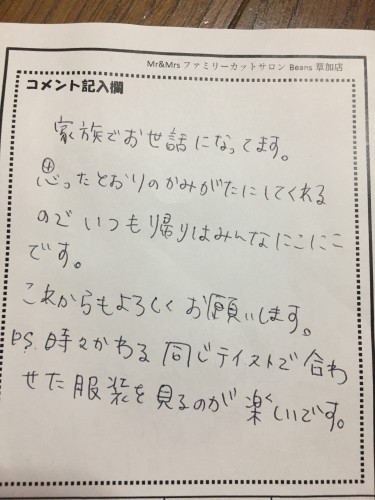 Mr&Mrs ファミリーカットサロン Beans 草加店
コメント記入欄
家族でお世話になってます。
思ったとおりのかみがたにしてくれる
のでいつも帰りはみんなにこにこ
です。
これからもよろしくお願いします。
P.S. 時々かわる同じテイストで合わ
せた服装を見るのが楽しいです。